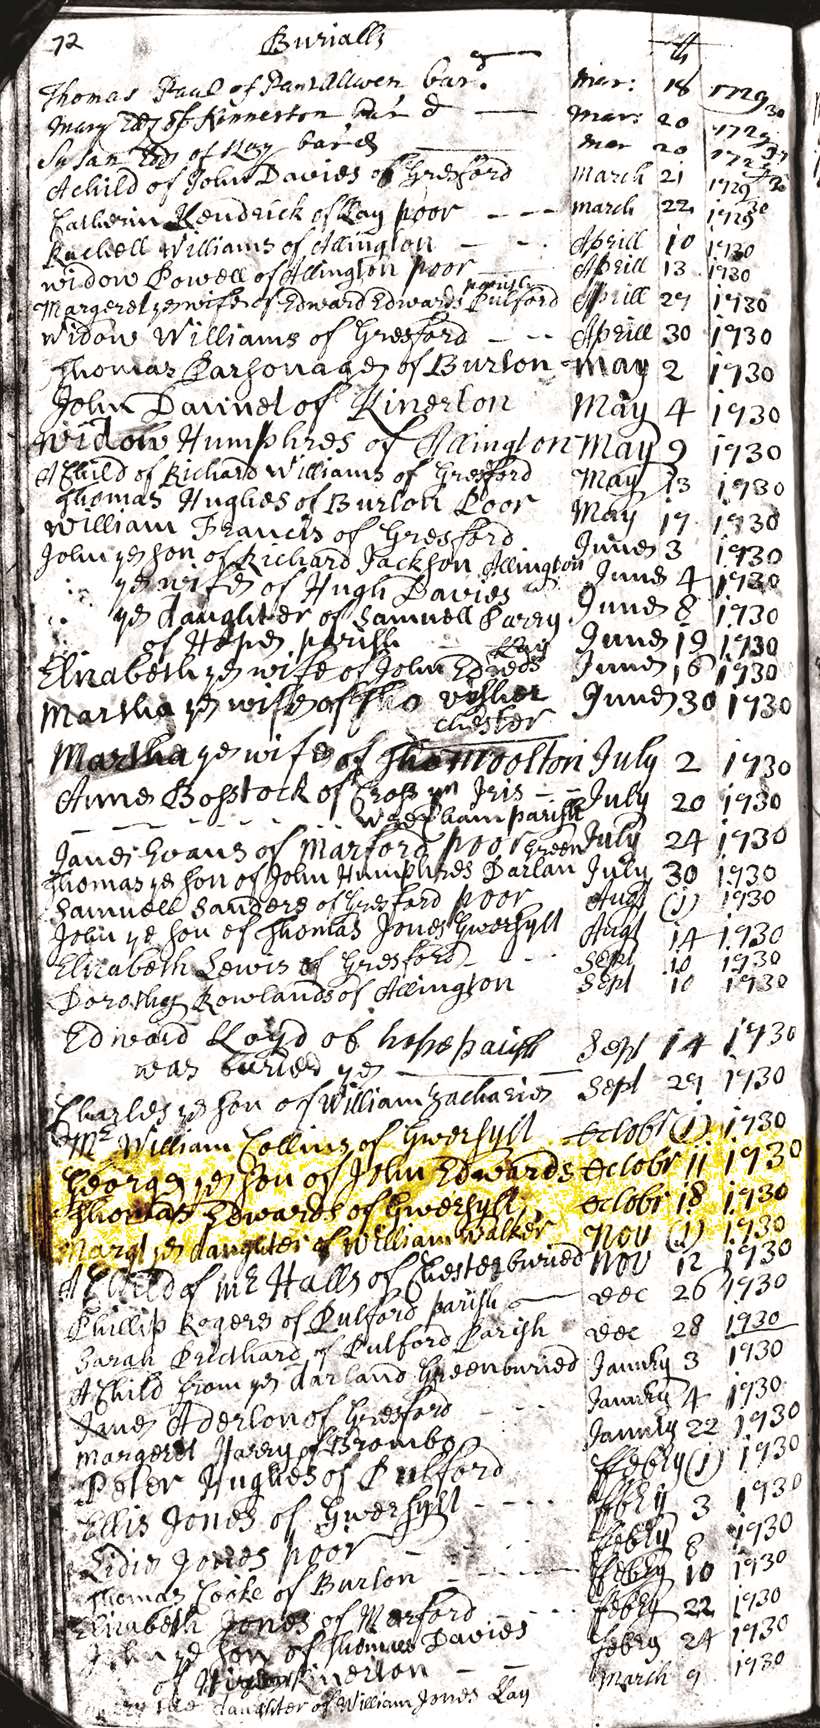 72 Burialls th
Thomas Paul of Pantallwen bard. Mar: 18 1729/30
Mary of Kinnerton bard Mar: 20 1729
Susan of Lay bard mar 20 1729
A child of John Davies of Gresford March 21 1729/30
Catherin Kendrick of Lay poor march 22 1729/30
Rachell Williams of Allington Aprill 10 1730
widow Powell of Allington poor Aprill 13 1730
Margeret ye wife of Edward Edwards Pulford parish Aprill 29 1730
Widow Williams of Gresford Aprill 30 1730
Thomas Parsonage of Burton May 2 1730
John of Kinerton May 4 1730
Widow Humphres of Allington May 9 1730
A Child of Richard Williams of Gresford May 13 1730
Thomas Hughes of Burton Poor May 17 1730
William Francis of Gresford June 3 1730
John ye son of Richard Jackson Allington June 4 1730
ye wife of Hugh Davies June 8 1730
ye daughter of Samuell Parry
of Hope parish June 19 1730
Elizabeth ye wife of John Lay June 16 1730
Martha ye wife of Tho June 30 1730
Chester
Martha ye wife of Tho Moolton July 2 1730
Anne Bosstock of Cross yn July 20 1730
parish
Jane Evans of Marford poor July 24 1730
Thomas ye son of John Humphres Darlan Green July 30 1730
Samuell Sanders of Gresford poor Augt (1) 1730
John ye son of Thomas Jones Gwersyllt Augt 14 1730
Elizabeth Lewis of Gresford Sept 10 1730
Dorothy Rowlands of Allington Sept 10 1730
Edward Loyd of hope parish Sept 14 1730
was buried ye
Charles ye son of William Zacharies Sept 29 1730
Mr William Collins of Gwersyllt Octobr (1) 1730
George ye son of John Edwards Octobr 11 1730
Thomas Edwards of Gwersyllt Octobr 18 1730
Margt ye daughter of William Walker Nov (1) 1730
A Child of mr Halls of Chester buried Nov 12 1730
Phillip Rogers of Pulford parish Dec 26 1730
Sarah Pritchard of Pulford Parish Dec 28 1730
A Child from ye darland Green buried Janury 3 1730
Jane Aderton of Gresford Janury 4 1730
Margeret Harry of Brombo Janury 22 1730
Peter Hughes of Pulford ffebry (1) 1730
Ellis Jones of Gwersyllt ffebry 3 1730
Lidie Jones poor ffebry 8 1730
Thomas Cooke of Burton ffebry 10 1730
Elizabeth Jones of Marford ffebry 22 1730
John ye son of Thomas Davies
of Kinerton febry 24 1730
daughter of William Jones Lay March 9 1730